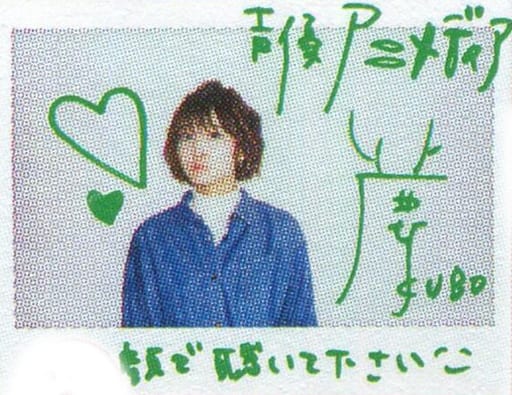 声優アニメディア
KUBO
で聴いて下さい